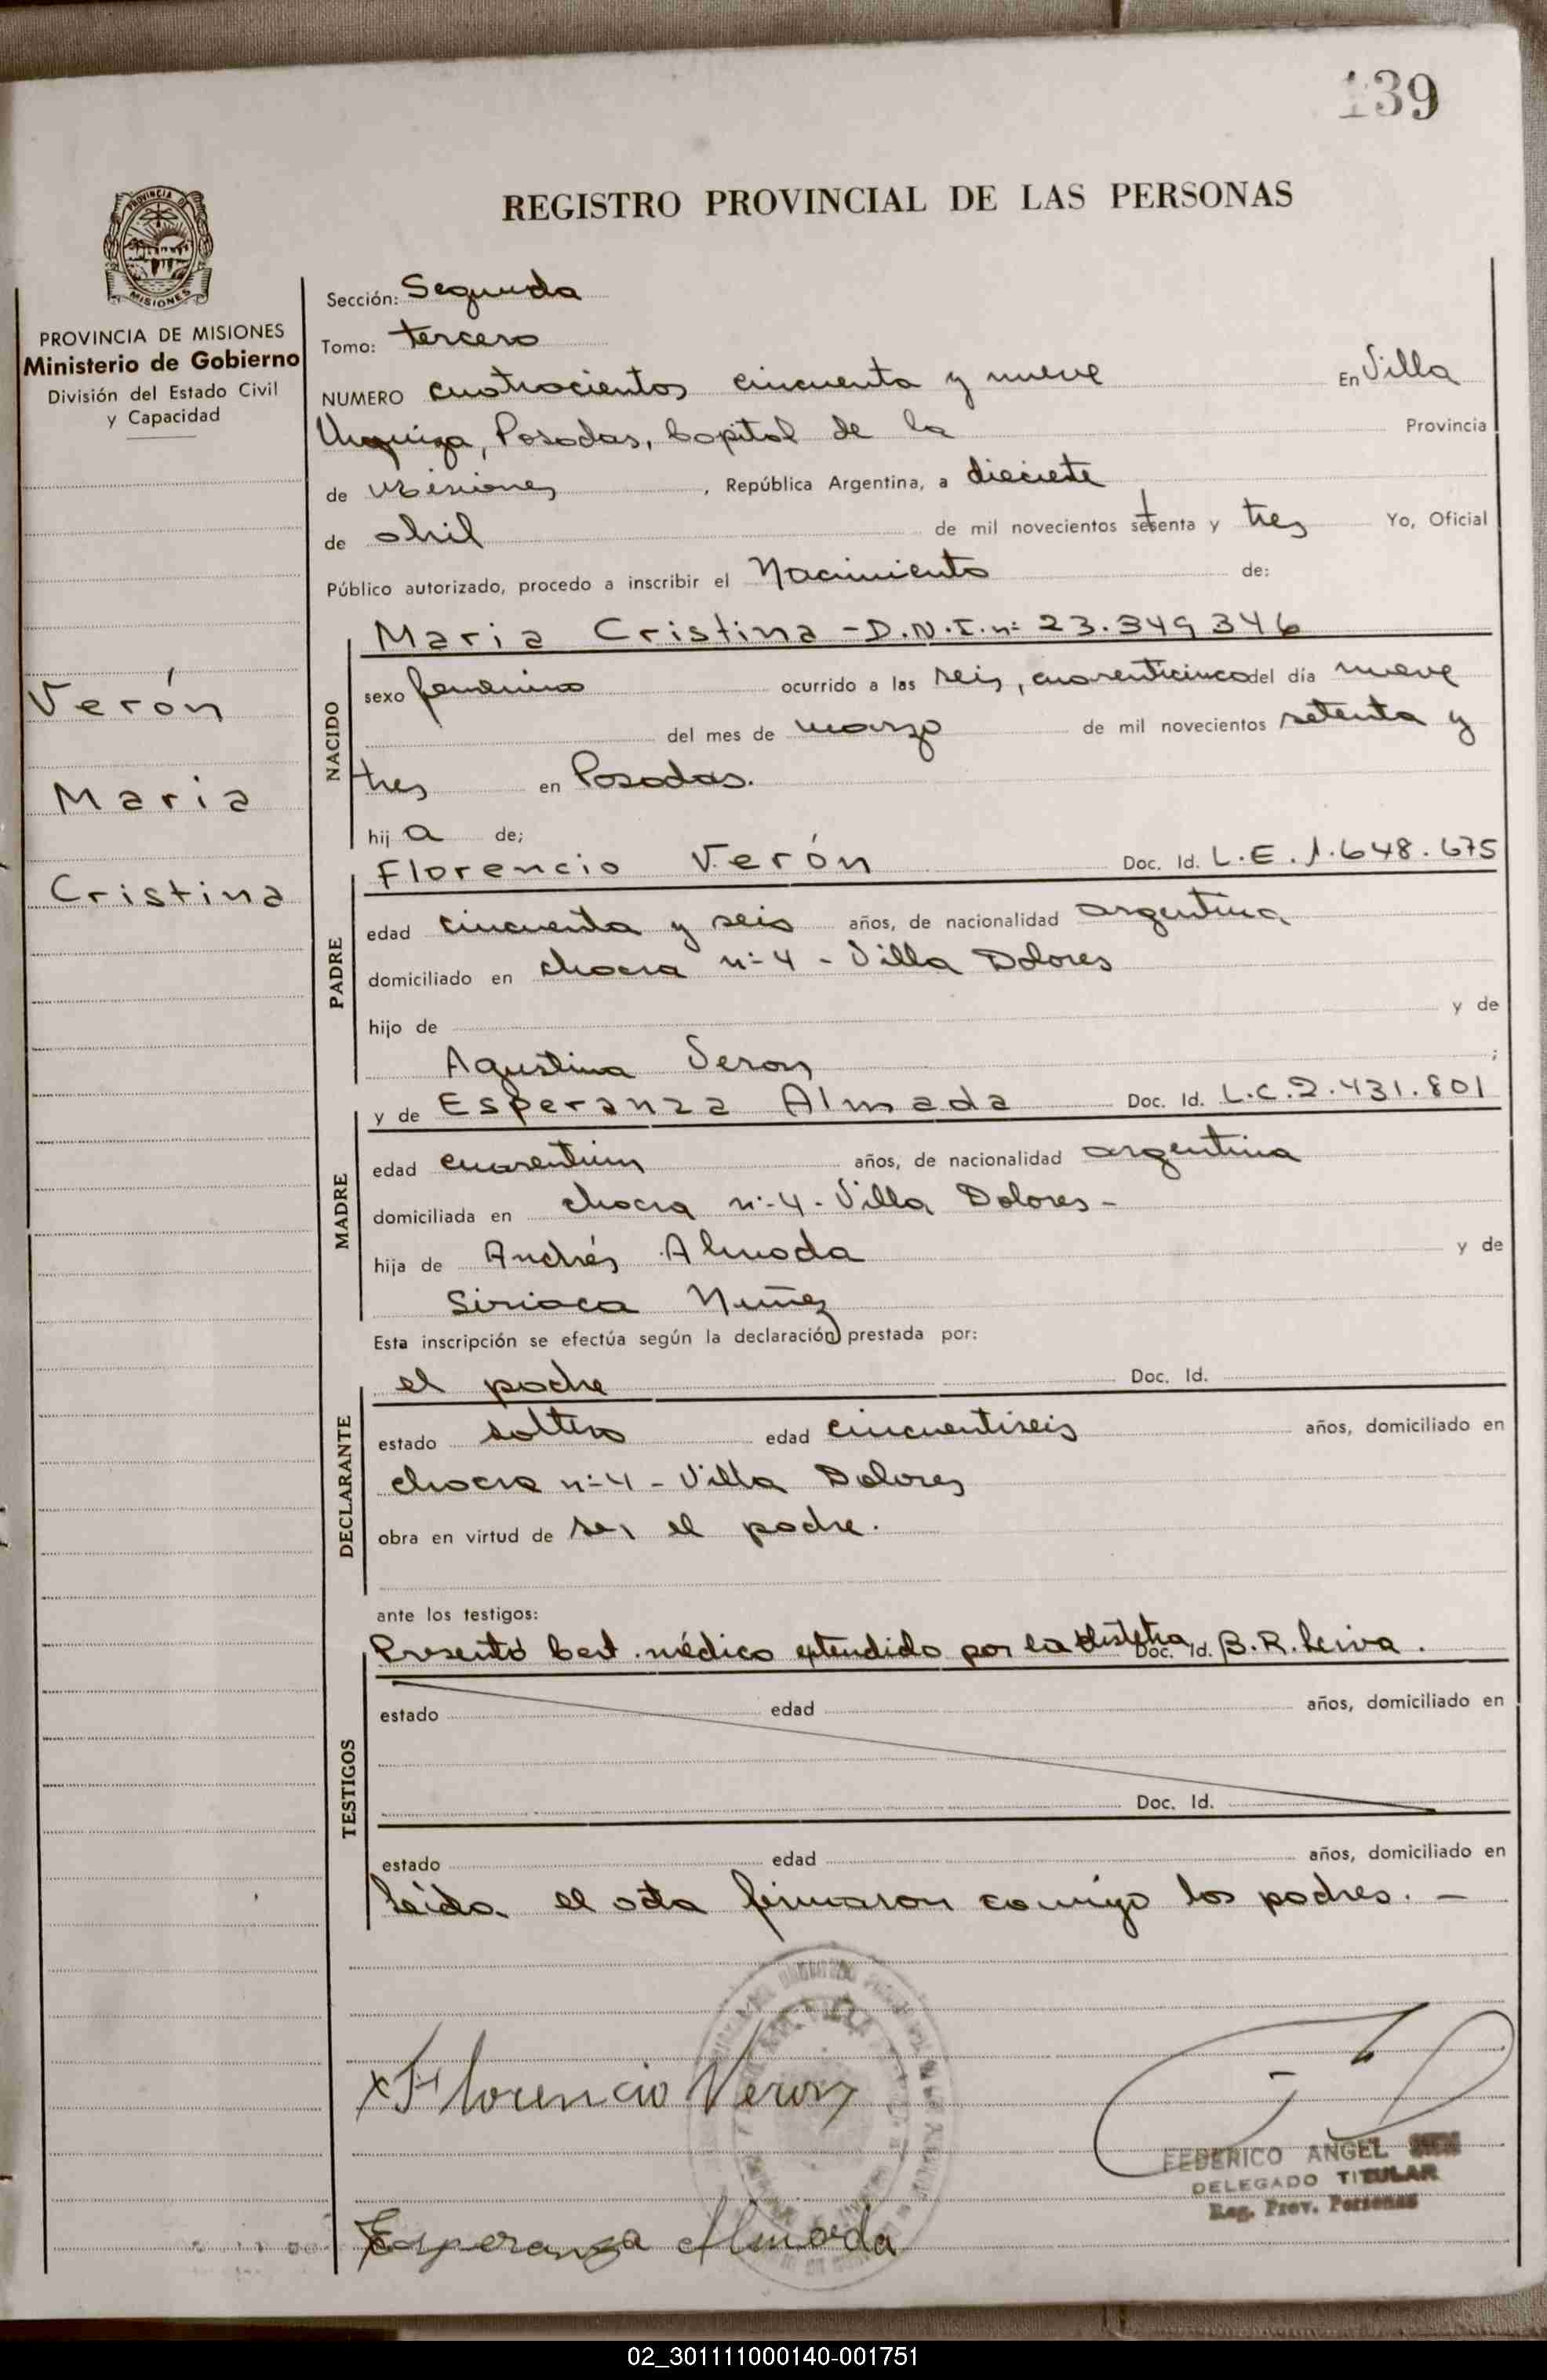 139
REGISTRO PROVINCIAL DE LAS PERSONAS
PROVINCIA DE
MISIONES
PROVINCIA DE MISIONES
Ministerio de Gobierno
División del Estado Civil
y Capacidad
Verón
Maria
Cristina
Sección: Segunda
Tomo: tercero
NUMERO cuatrocientos cincuenta y nueve En Villa
Urquiza, Posadas, Capital de la Provincia
de Misiones, República Argentina, a diecisiete
de abril de mil novecientos setenta y tres Yo, Oficial
Público autorizado, procedo a inscribir el Nacimiento de:
NACIDO
Maria Cristina - D.N.I. nº 23.349346
sexo femenino ocurrido a las seis, cuarenticinco del día nueve
del mes de marzo de mil novecientos setenta y
tres en Posadas.
hij a de;
PADRE
Florencio Verón Doc. Id. L.E. 1.648.675
edad cincuenta y seis años, de nacionalidad argentina
domiciliado en chacra nº 4 - Villa Dolores
hijo de y de
Agustina Veron ;
MADRE
y de Esperanza Almada Doc. Id. L.C. 2.431.801
edad cuarentiun años, de nacionalidad argentina
domiciliada en chacra nº 4 - Villa Dolores -
hija de Andrés Almada y de
Siriaca Nuñez
Esta inscripción se efectúa según la declaración prestada por:
DECLARANTE
el padre Doc. Id.
estado soltero edad cincuentiseis años, domiciliado en
chacra nº 4 - Villa Dolores
obra en virtud de ser el padre.
ante los testigos:
TESTIGOS
Presentó Cert. médico extendido por la Obstetra Doc. Id. B.R. Leiva.
estado edad años, domiciliado en
Doc. Id.
estado edad años, domiciliado en
Leída el acta firmaron conmigo los padres. -
x Florencio Veron
FEDERICO ANGEL
DELEGADO TITULAR
Reg. Prov. Personas
Esperanza Almada
02_301111000140-001751